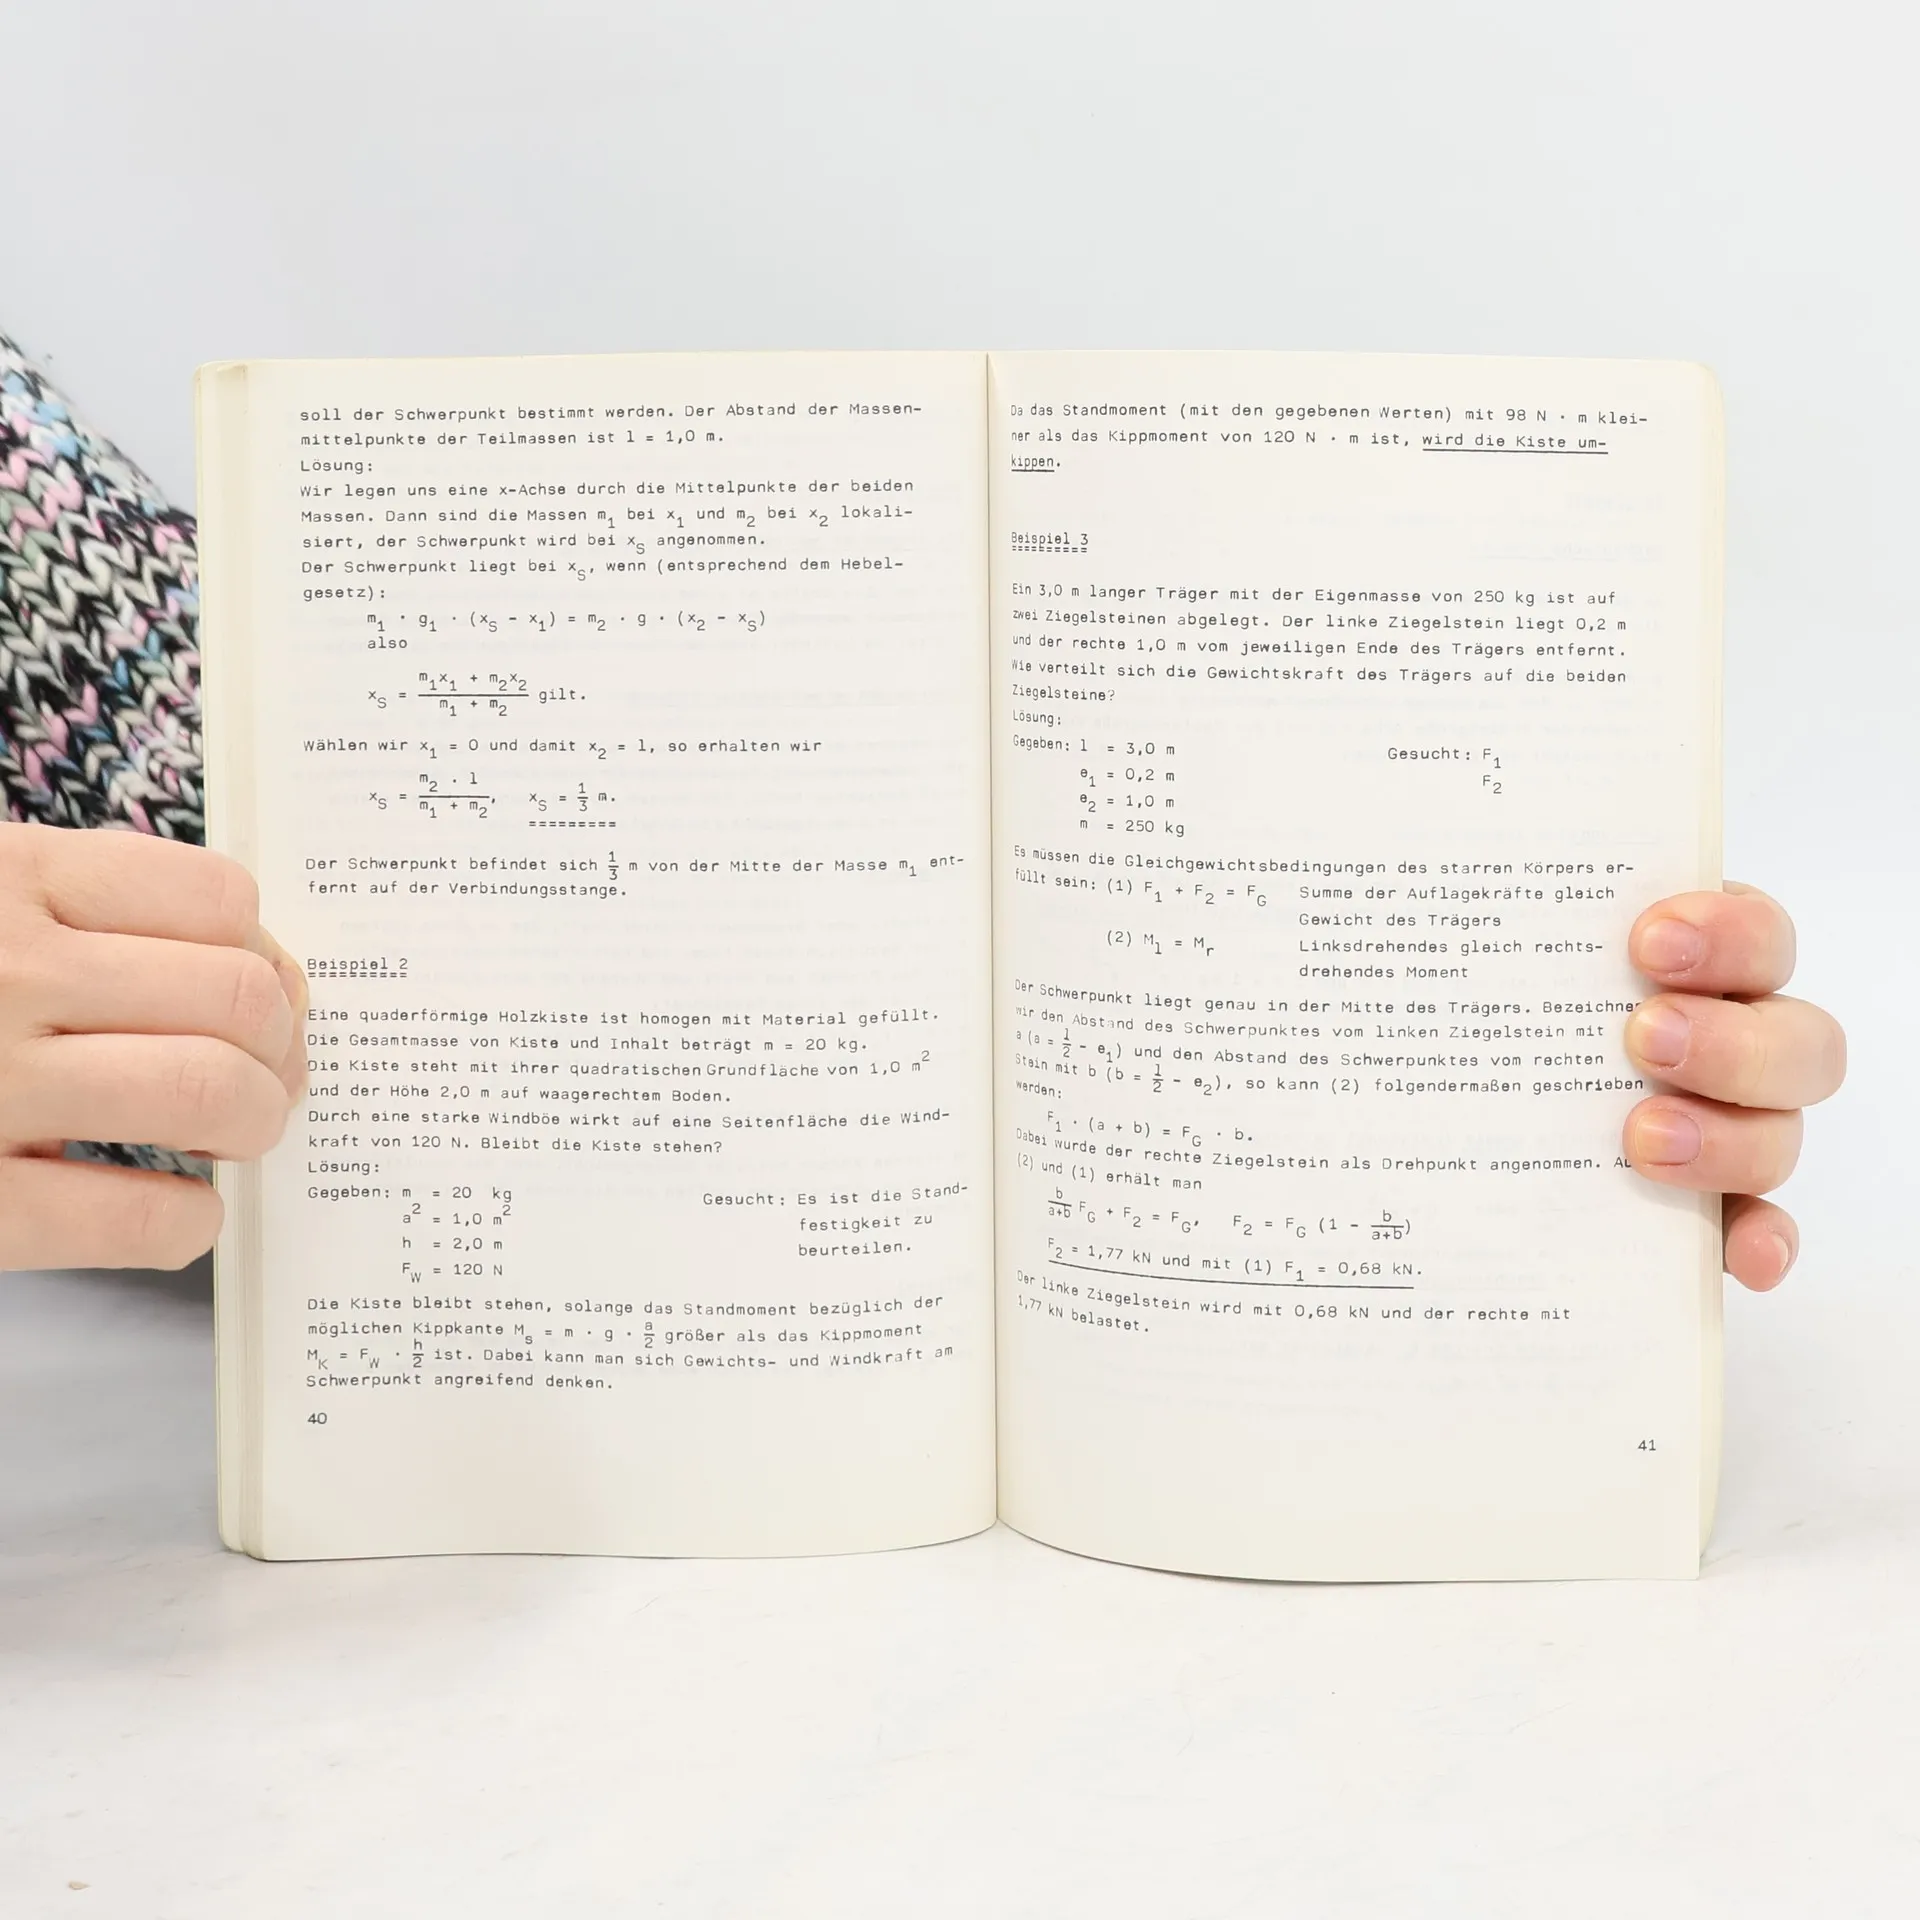 soll der Schwerpunkt bestimmt werden. Der Abstand der Massen-
mittelpunkte der Teilmassen ist l = 1,0 m.
Lösung:
Wir legen uns eine x-Achse durch die Mittelpunkte der beiden
Massen. Dann sind die Massen m₁ bei x₁ und m₂ bei x₂ lokali-
siert, der Schwerpunkt wird bei x_S angenommen.
Der Schwerpunkt liegt bei x_S, wenn (entsprechend dem Hebel-
gesetz):
m₁ · g₁ · (x_S - x₁) = m₂ · g · (x₂ - x_S)
also
x_S = (m₁x₁ + m₂x₂)/(m₁ + m₂) gilt.
Wählen wir x₁ = 0 und damit x₂ = l, so erhalten wir
x_S = (m₂ · l)/(m₁ + m₂), x_S = 1/3 m.
Der Schwerpunkt befindet sich 1/3 m von der Mitte der Masse m₁ ent-
fernt auf der Verbindungsstange.
Beispiel 2
Eine quaderförmige Holzkiste ist homogen mit Material gefüllt.
Die Gesamtmasse von Kiste und Inhalt beträgt m = 20 kg.
Die Kiste steht mit ihrer quadratischen Grundfläche von 1,0 m²
und der Höhe 2,0 m auf waagerechtem Boden.
Durch eine starke Windböe wirkt auf eine Seitenfläche die Wind-
kraft von 120 N. Bleibt die Kiste stehen?
Lösung:
Gegeben: m = 20 kg Gesucht: Es ist die Stand-
a² = 1,0 m² festigkeit zu
h = 2,0 m beurteilen.
F_W = 120 N
Die Kiste bleibt stehen, solange das Standmoment bezüglich der
möglichen Kippkante M_s = m · g · a/2 größer als das Kippmoment
M_K = F_W · h/2 ist. Dabei kann man sich Gewichts- und Windkraft am
Schwerpunkt angreifend denken.
40
Da das Standmoment (mit den gegebenen Werten) mit 98 N · m klei-
ner als das Kippmoment von 120 N · m ist, wird die Kiste um-
kippen.
Beispiel 3
Ein 3,0 m langer Träger mit der Eigenmasse von 250 kg ist auf
zwei Ziegelsteinen abgelegt. Der linke Ziegelstein liegt 0,2 m
und der rechte 1,0 m vom jeweiligen Ende des Trägers entfernt.
Wie verteilt sich die Gewichtskraft des Trägers auf die beiden
Ziegelsteine?
Lösung:
Gegeben: l = 3,0 m Gesucht: F₁
e₁ = 0,2 m F₂
e₂ = 1,0 m
m = 250 kg
Es müssen die Gleichgewichtsbedingungen des starren Körpers er-
füllt sein: (1) F₁ + F₂ = F_G Summe der Auflagekräfte gleich
Gewicht des Trägers
(2) M_l = M_r Linksdrehendes gleich rechts-
drehendes Moment
Der Schwerpunkt liegt genau in der Mitte des Trägers. Bezeichnen
wir den Abstand des Schwerpunktes vom linken Ziegelstein mit
a (a = l/2 - e₁) und den Abstand des Schwerpunktes vom rechten
Stein mit b (b = l/2 - e₂), so kann (2) folgendermaßen geschrieben
werden:
F₁ · (a + b) = F_G · b.
Dabei wurde der rechte Ziegelstein als Drehpunkt angenommen.
(2) und (1) erhält man
b/(a+b) F_G + F₂ = F_G, F₂ = F_G (1 - b/(a+b))
F₂ = 1,77 kN und mit (1) F₁ = 0,68 kN.
Der linke Ziegelstein wird mit 0,68 kN und der rechte mit
1,77 kN belastet.
41